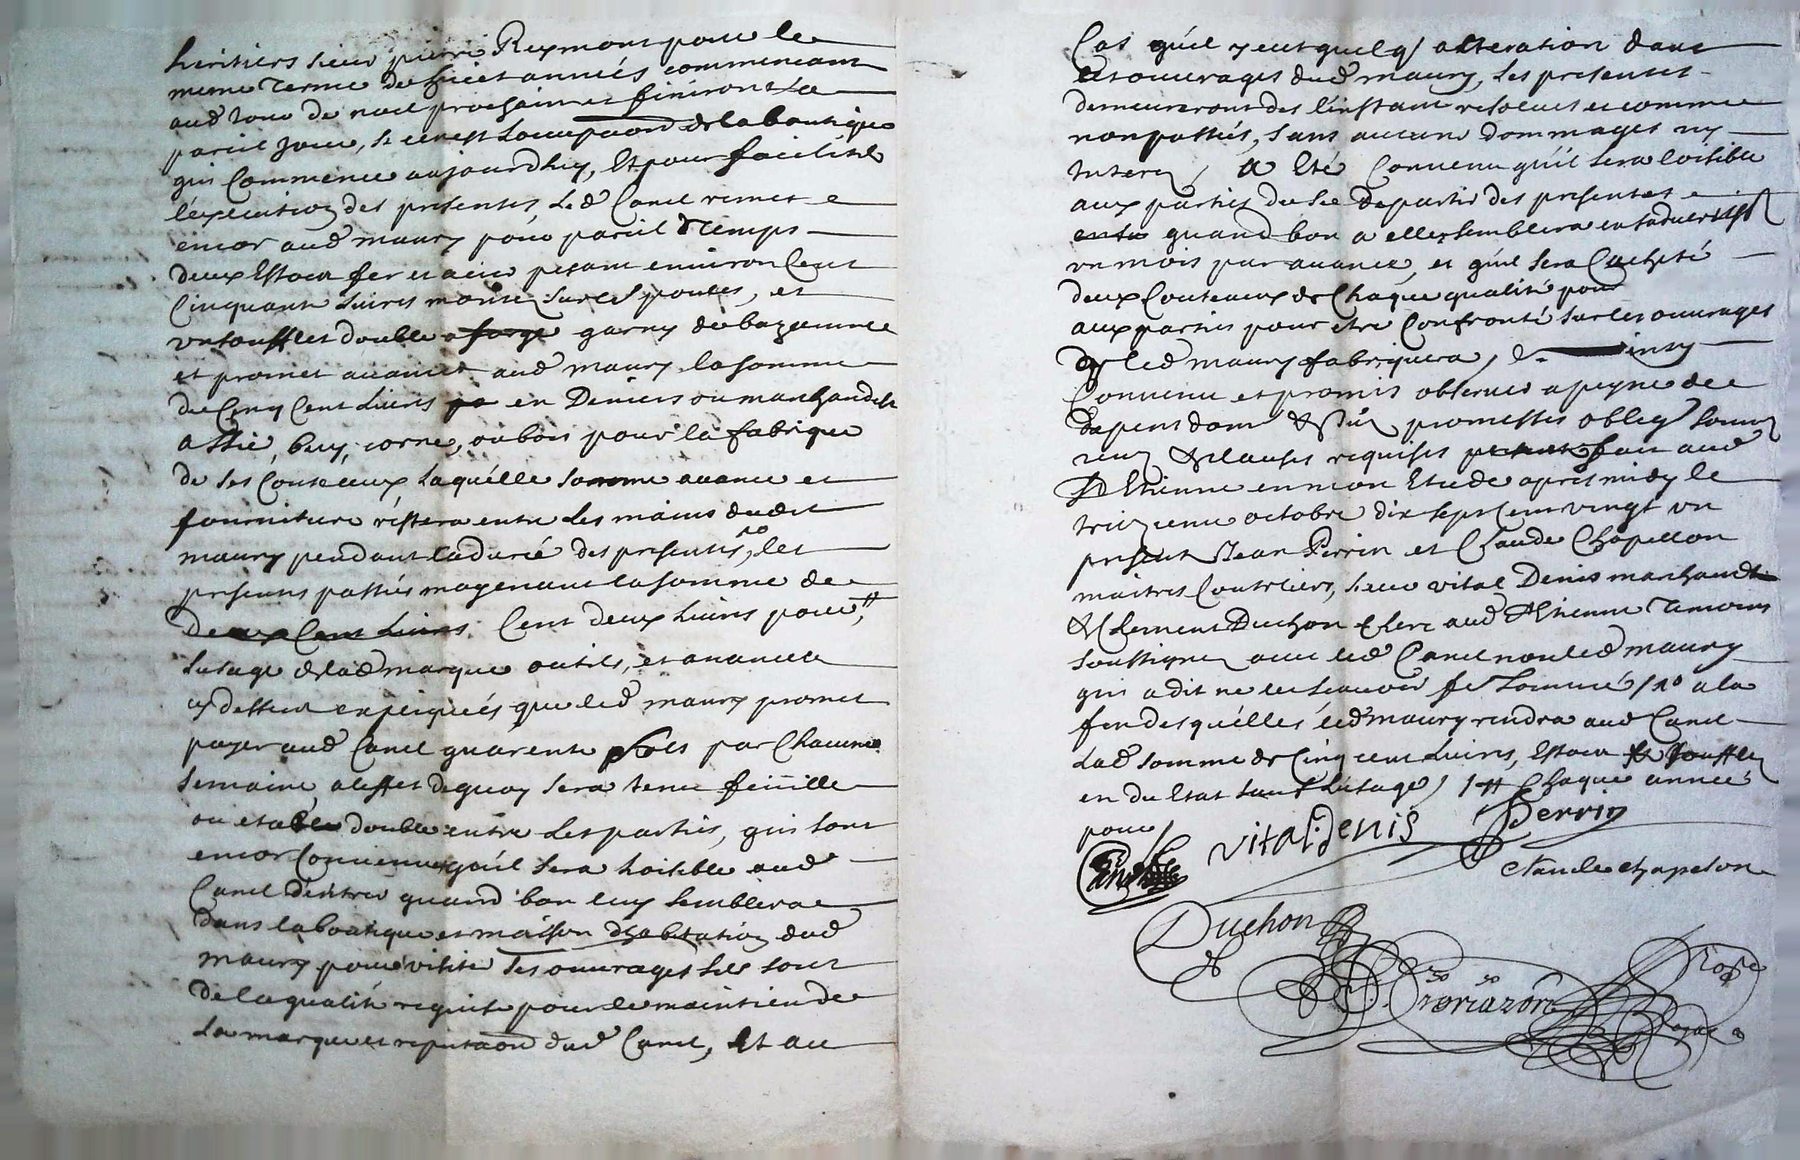 heritiers sieur pierre Reymont pour le
meme terme de huict années commencant
aud jour de noel prochain et finiront a
pareil jour, si ce nest loccupaon de la boutique
qui Commence aujourdhuy, Et pour facilité
l'execution des presentes led Canel remet
encor aud maury pour pareil temps
deux Estocu fer et acier pesant environ Cent
Cinquante livres monté sur
un soufflet double a forge garny de bazanne
et promet avancer aud maury la somme
de Cinq Cent livres en Deniers ou marchandise
assie, buy, corne, ou bois pour la fabrique
de ses Couteaux laquélle somme avance et
fourniture réstera entre les mains dudit
maury pendant la durée des presentes, les
presentes passées moyenant la somme de
deux Cent livres Cent deux livres pour
lusage de lad marque outils, et avance
cy dessus expliqués que led maury promet
payer aud Canel quarente sols par Chacune
semaine, a leffet dequoy sera tenu feüille
ou etable double entre les parties, qui sont
encor Convenu qu'il sera loisible aud
Canel d'entrer quand bon luy semblera
dans la boutique et maison d'habitation dud
maury pour visité ses ouvrages sils sont
de la qualité requise pour le maintien de
la marque et reputaon dud Canel, Et au
Cas qu'il y eut quelq alteration dans
les ouvrages dud maury, les presentes
demeureront des l'instant resolues et comme
non passées, sans aucuns dommages ny
Interez, A Eté Convenu qu'il sera loisible
aux parties du se departir des presentes
quand bon a elles semblera en
un mois par avance, et qu'il sera Cacheté
deux Couteaux de Chaque qualité pour
aux parties pour etre Confronté sur les ouvrages
q led maury fabriquera, ainsy
Convenu et promis observer a peyne de
depens dom promesses obleg soum
renz & clauses requises fait aud
St Etienne en mon Etude apres midy le
treizieme octobre dix sept cent vingt un
present Jean Perrin et Claude Chapellon
maitres Coutelliers, sieur vital Denis marchand
& Clement Duchon Clerc aud St Etienne temoins
soussignez avec led Canel non led maury
qui a dit ne le scavoir de Sommé / 10 a la
fin desquélles led maury rendra aud Canel
lad somme de Cinq cent livres, Estocu & soufflet
en du Etat sauf l'usage / 1# Chaque année
pour /
vital denis Perrin
Canel
claude chapelon
Duchon